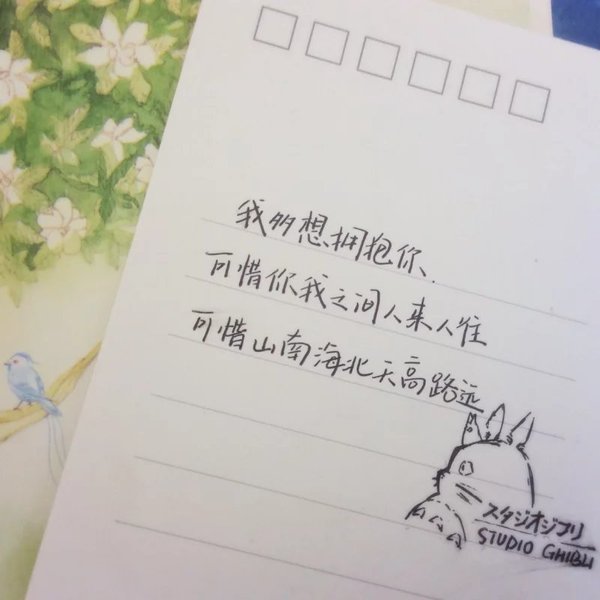 我多想拥抱你、
可惜你我之间人来人往
可惜山南海北天高路远
スタジオジブリ
STUDIO GHIBLI